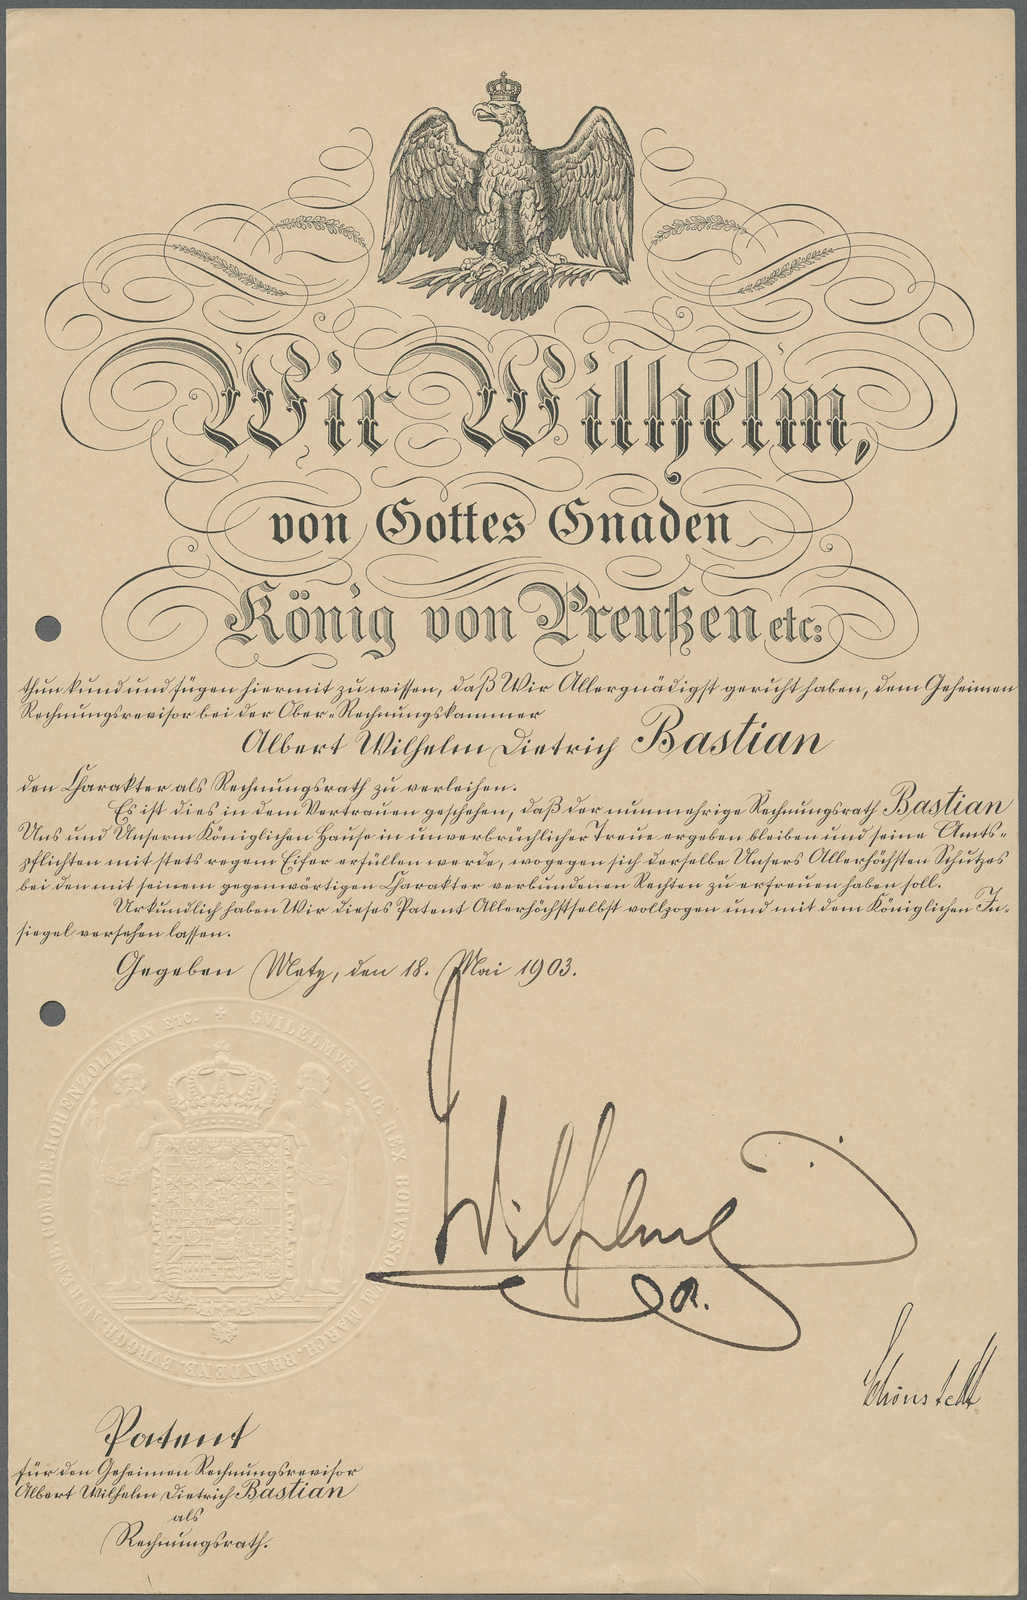 Wir Wilhelm,
von Gottes Gnaden
König von Preußen etc:
thun kund und fügen hiermit zu wissen, daß Wir Allergnädigst geruht haben, dem Geheimen
Rechnungsrevisor bei der Ober-Rechnungskammer
Albert Wilhelm Dietrich Bastian
den Charakter als Rechnungsrath zu verleihen.
Es ist dies in dem Vertrauen geschehen, daß der nunmehrige Rechnungsrath Bastian
Uns und Unserm Königlichen Hause in unverbrüchlicher Treue ergeben bleiben und seine Amts-
pflichten mit stets regem Eifer erfüllen werde, wogegen sich derselbe Unsers Allerhöchsten Schutzes
bei den mit seinem gegenwärtigen Charakter verbundenen Rechten zu erfreuen haben soll.
Urkundlich haben Wir dieses Patent Allerhöchstselbst vollzogen und mit dem Königlichen In-
siegel versehen lassen.
Gegeben Metz, den 18. Mai 1903.
GVILELMVS D. G. REX BORVSSO MARCH. BRANDENB. BVRGGR. COM. DE HOHENZOLLERN ETC.
Wilhelm
R.
Schönstedt
Patent
für den Geheimen Rechnungsrevisor
Albert Wilhelm Dietrich Bastian
als
Rechnungsrath.